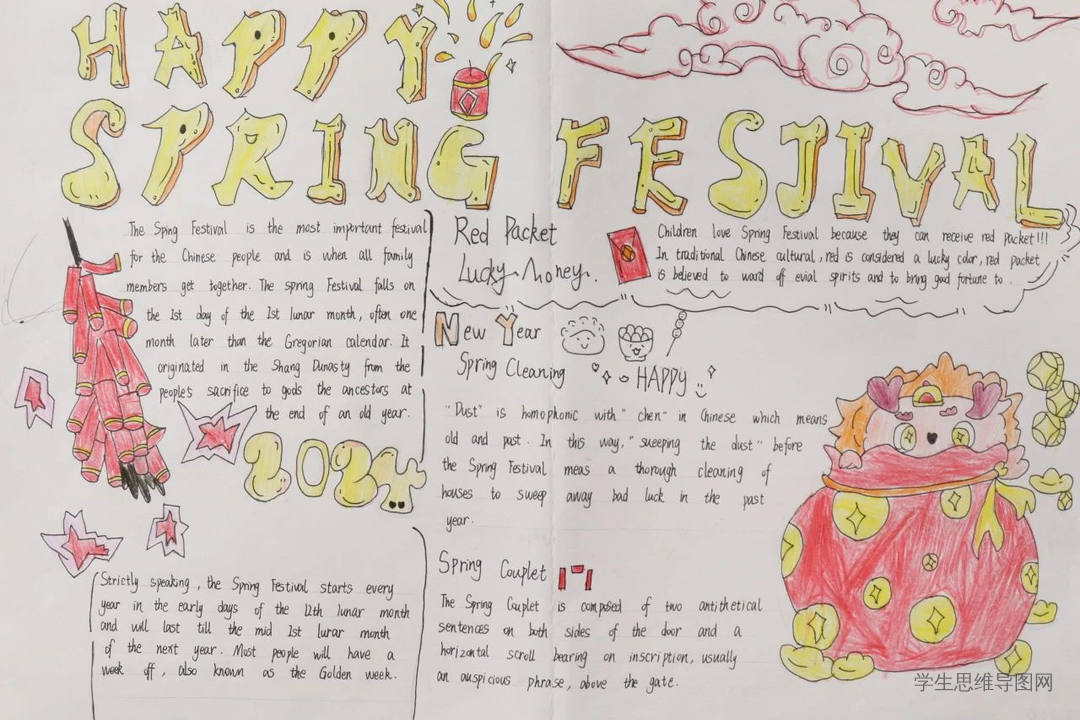 HAPPY
SPRING FESTIVAL
The Sping Festival is the most important festival
for the Chinese people and is when all family
members get together. The spring Festival falls on
the 1st day of the 1st lunar month, often one
month later than the Gregorian calendar. It
originated in the Shang Dunasty from the
people's sacrifice to gods the ancestors at
the end of an old year.
2024
Strictly speaking, the Spring Festival starts every
year in the early days of the 12th lunar month
and will last till the mid 1st lurar month
of the next year. Most people will have a
week off, also known as the Golden week.
Red Packet
Lucky Money.
Children love Spring Festival because they can receive red packet!!!
In traditional Chinese cultural, red is considered a lucky color, red packet
is believed to ward of evial spirits and to bring good fortune to.
New Year
Spring Cleaning
HAPPY
"Dust" is homophonic with "chen" in Chinese which means
old and past. In this way, "sweeping the dust" before
the Spring Festival meas a thorough cleaning of
houses to sweep away bad luck in the past
year.
Spring Couplet
The Spring Couplet is composed of two antithetical
sentences on both sides of the door and a
horizontal scroll bearing an inscription, usually
an auspicious phrase, above the gate.
学生思维导图网